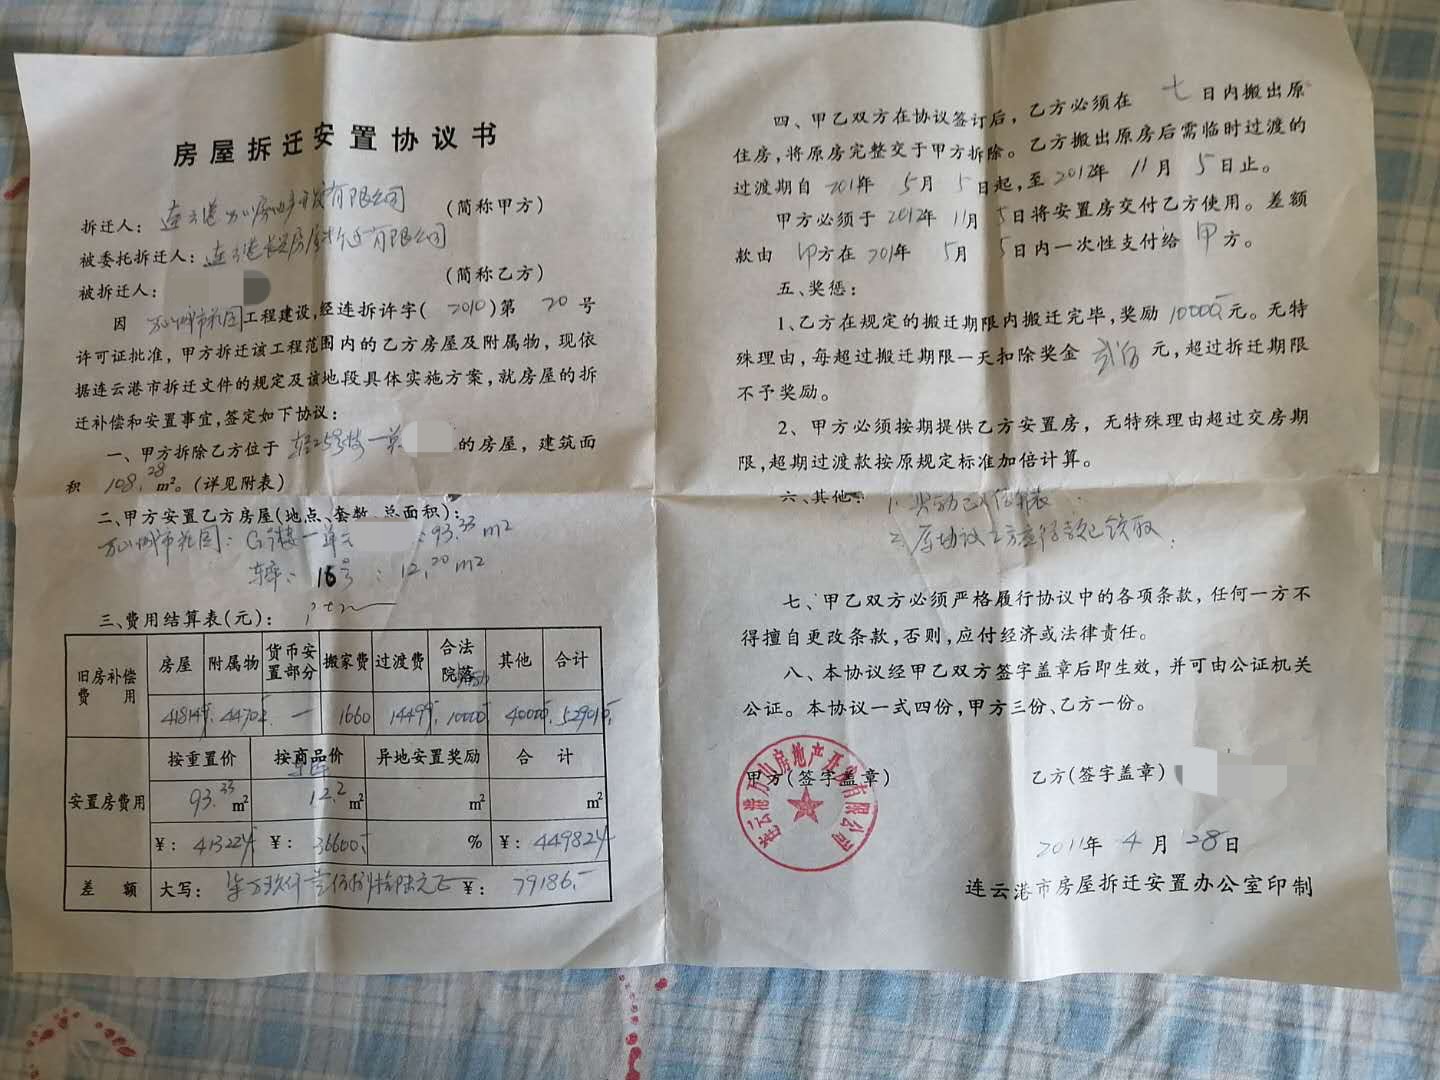 房屋拆迁安置协议书
拆迁人：连云港万山房地产开发有限公司（简称甲方）
被委托拆迁人：连云港 房屋拆迁有限公司
被拆迁人：（简称乙方）
因 万山城市花园工程建设,经连拆许字( 2010 )第 20 号
许可证批准，甲方拆迁该工程范围内的乙方房屋及附属物，现依
据连云港市拆迁文件的规定及该地段具体实施方案，就房屋的拆
迁补偿和安置事宜,签定如下协议：
一、甲方拆除乙方位于 25号楼一单 的房屋，建筑面
积 108.28 m²。(详见附表)
二、甲方安置乙方房屋(地点、套数、总面积)：
万山城市花园：G 楼一单元 ：93.33 m²
车库： 16号 ：12.20 m²
三、费用结算表(元)：
旧房补偿费用 房屋 附属物 货币安置部分 搬家费 过渡费 合法院落 其他 合计
418149 44702 一 1660 14499 10000 40000 529010
安置房费用 按重置价 按商品价 异地安置奖励 合计
93.33 m² 车库 12.2 m² m² m²
¥：413224 ¥：36600 % ¥：449824
差额 大写：柒万玖仟壹佰捌拾陆元正 ¥：79186
四、甲乙双方在协议签订后，乙方必须在 七 日内搬出原
住房，将原房完整交于甲方拆除。乙方搬出原房后需临时过渡的
过渡期自 2011年 5月 5日起，至 2012年 11月 5日止。
甲方必须于 2012年 11月 5日将安置房交付乙方使用。差额
款由 方在 2011年 5月 5日内一次性支付给 甲方。
五、奖惩：
1、乙方在规定的搬迁期限内搬迁完毕，奖励 10000 元。无特
殊理由，每超过搬迁期限一天扣除奖金 贰佰 元，超过拆迁期限
不予奖励。
2、甲方必须按期提供乙方安置房，无特殊理由超过交房期
限,超期过渡款按原规定标准加倍计算。
六、其他：1. 奖励已
2. 原协议乙方 款已领取；
七、甲乙双方必须严格履行协议中的各项条款，任何一方不
得擅自更改条款，否则，应付经济或法律责任。
八、本协议经甲乙双方签字盖章后即生效，并可由公证机关
公证。本协议一式四份，甲方三份、乙方一份。
连云港万山房地产开发有限公司
甲方(签字盖章) 乙方(签字盖章)
2011年 4月 28日
连云港市房屋拆迁安置办公室印制